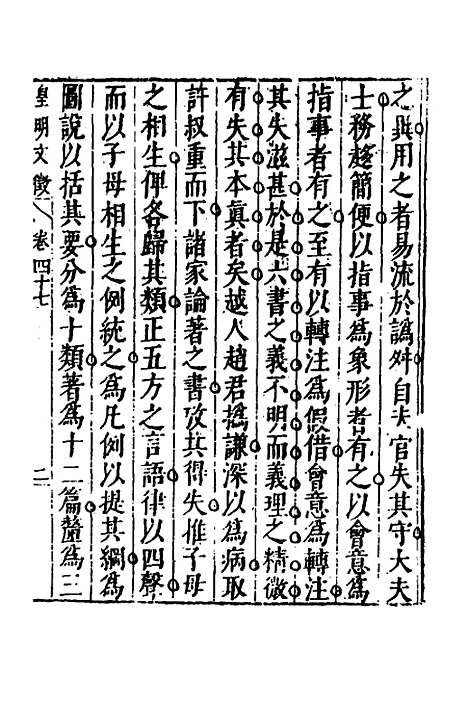 之與用之者易流於譌舛自夫官失其守大夫
士務趨簡便以指事為象形者有之以會意為
指事者有之至有以轉注為假借會意為轉注
其失滋甚於是六書之義不明而義理之精微
有失其本真者矣越人趙君撝謙深以為病取
許叔重而下諸家論著之書攷其得失推子母
之相生俾各歸其類正五方之言語律以四聲
而以子母相生之例統之為凡例以提其綱為
圖說以括其要分為十類著為十二篇釐為三
皇明文徵 卷四十七 二